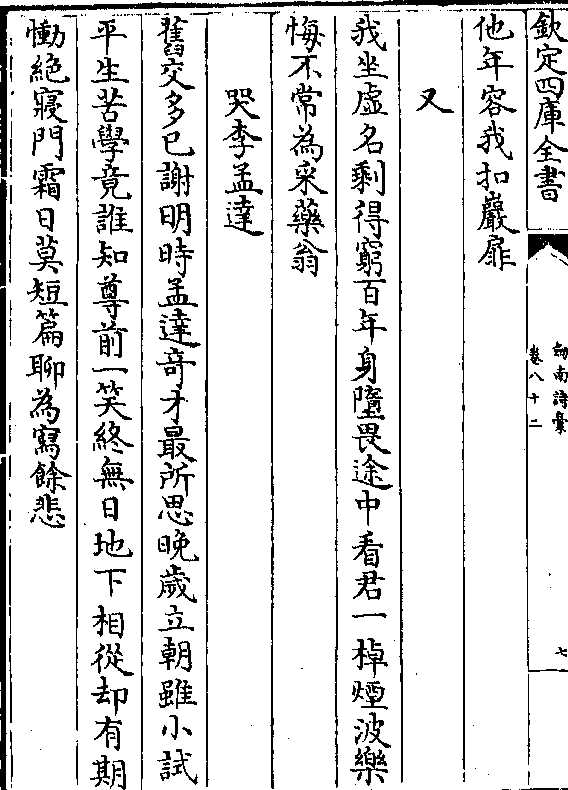 欽定四庫全書
劍南詩稾
卷八十二
七
他年容我扣巖扉
又
我坐虛名剩得窮百年身墮畏途中看君一棹煙波樂
悔不常為采藥翁
哭李孟達
舊交多已謝明時孟達竒才最所思晚歲立朝雖小試
平生苦學竟誰知尊前一笑終無日地下相從却有期
慟絶寢門霜日莫短篇聊為寫餘悲